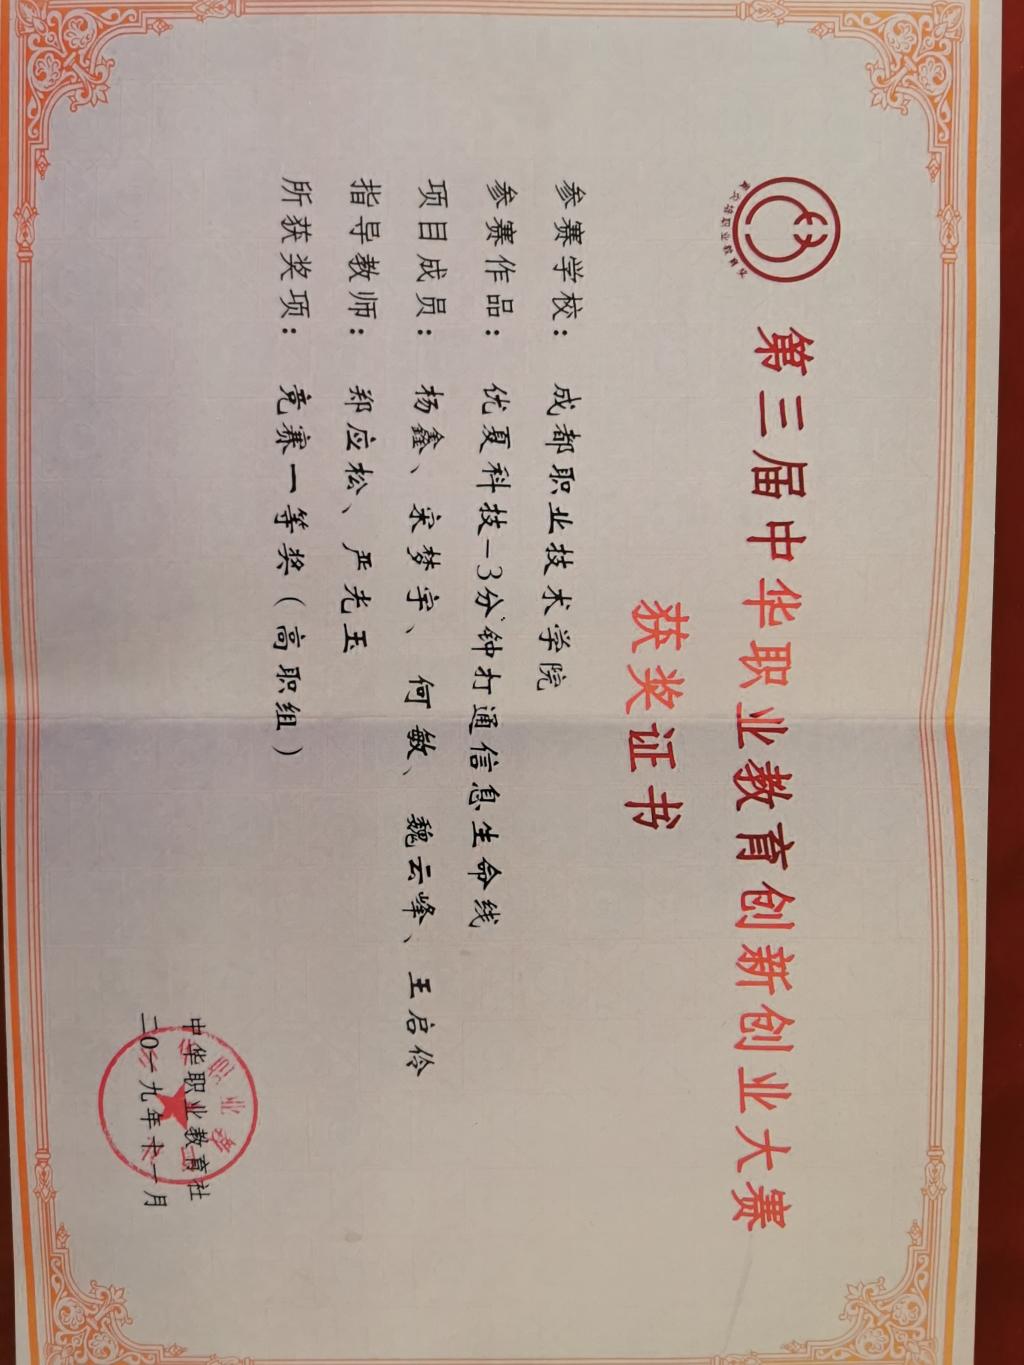 第三届中华职业教育创新创业大赛
获奖证书
参赛学校：成都职业技术学院
参赛作品：优夏科技-3分钟打通信息生命线
项目成员：杨鑫、宋梦宇、何敏、魏云峰、王启伶
指导教师：郑应松、严光玉
所获奖项：竞赛一等奖（高职组）
中华职业教育社
二0一九年十一月